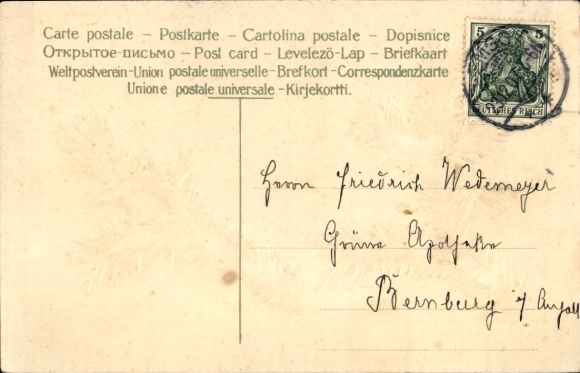 Carte postale – Postkarte – Cartolina postale – Dopisnice
Открытое-письмо – Post card – Levelezö-Lap – Briefkaart
Weltpostverein-Union postale universelle-Brefkort-Correspondenzkarte
Unione postale universale-Kirjekortti.
5 5
DEUTSCHES REICH
Herrn Friedrich Wedemeyer
Grüne Apotheke
Bernburg i/ Anhalt